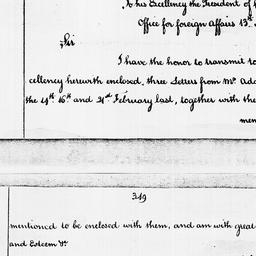 To his Excellency the President of
Office for foreign Affairs 13th
Sir
I have the honor to transmit to
cellency herewith enclosed, three Letters from Mr. Ada
the 14th 16th and 21st February last, together with the
men
349
mentioned to be enclosed with them, and am with great
and Esteem &c